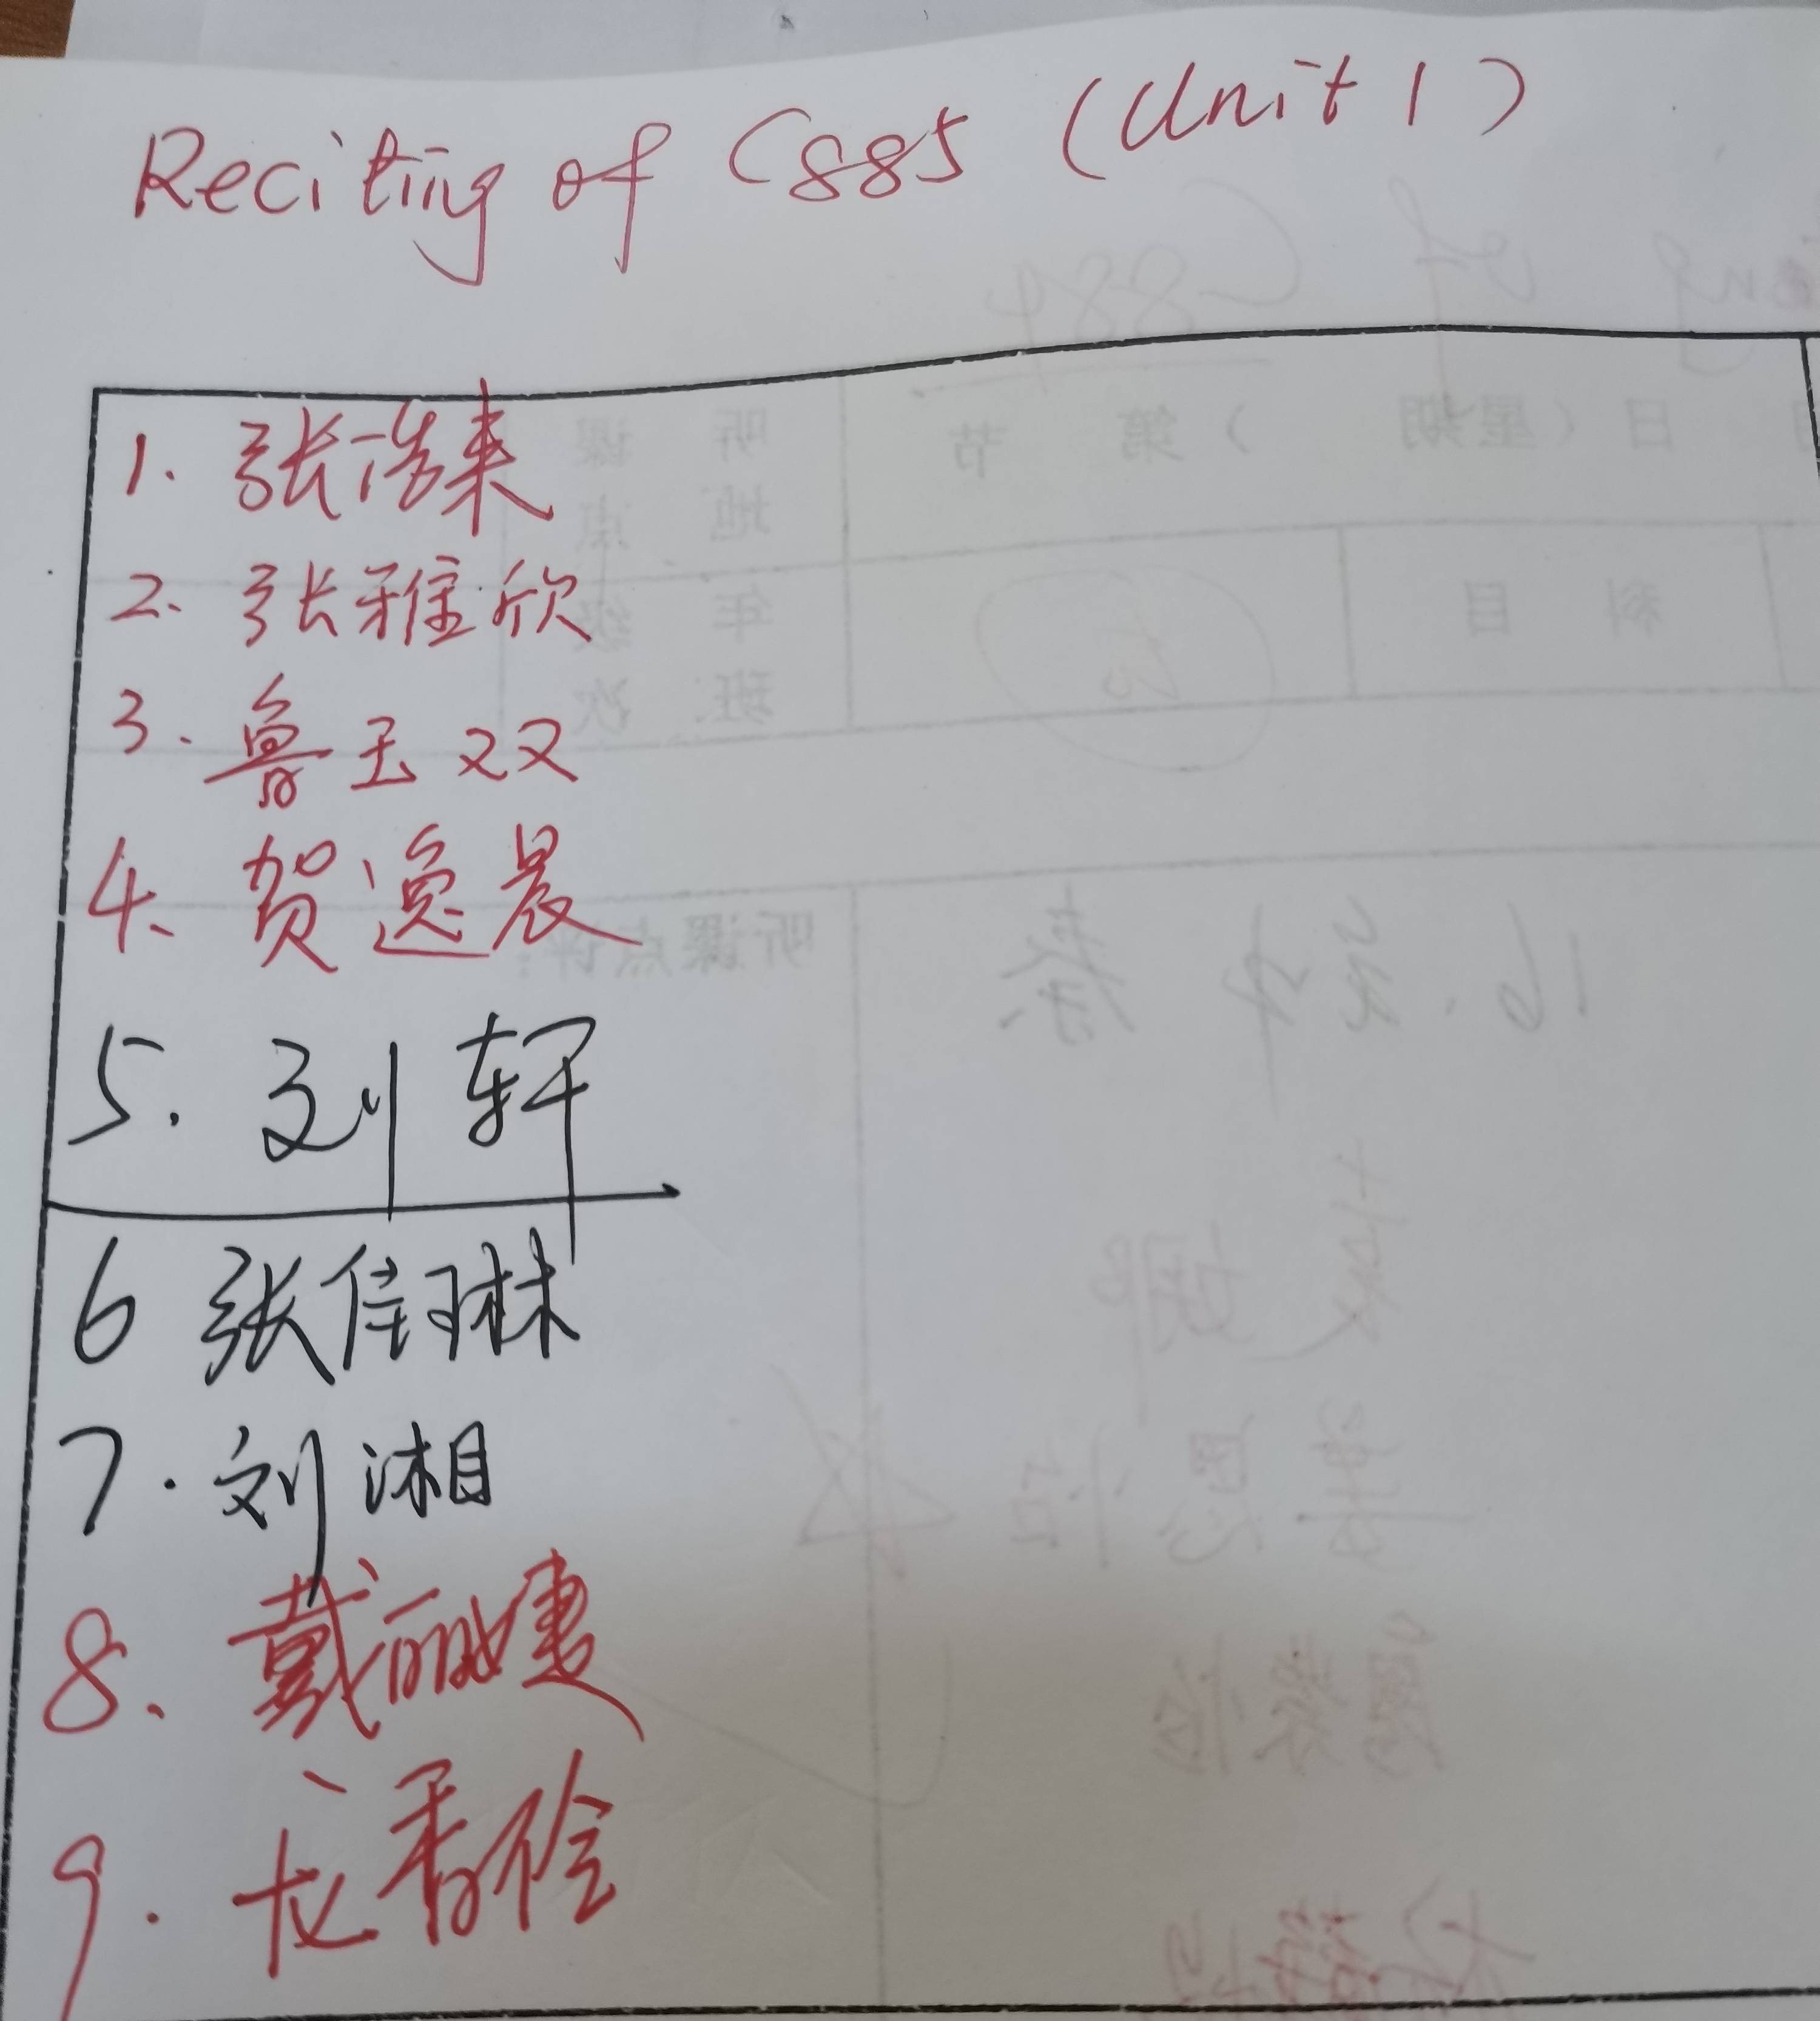 Reciting of C885 (Unit 1)
1. 张浩来
2. 张雅欣
3. 鲁玉双
4. 贺逸晨
5. 刘轩
6 张倍琳
7. 刘湘
8. 戴丽婕
9. 龙香伶